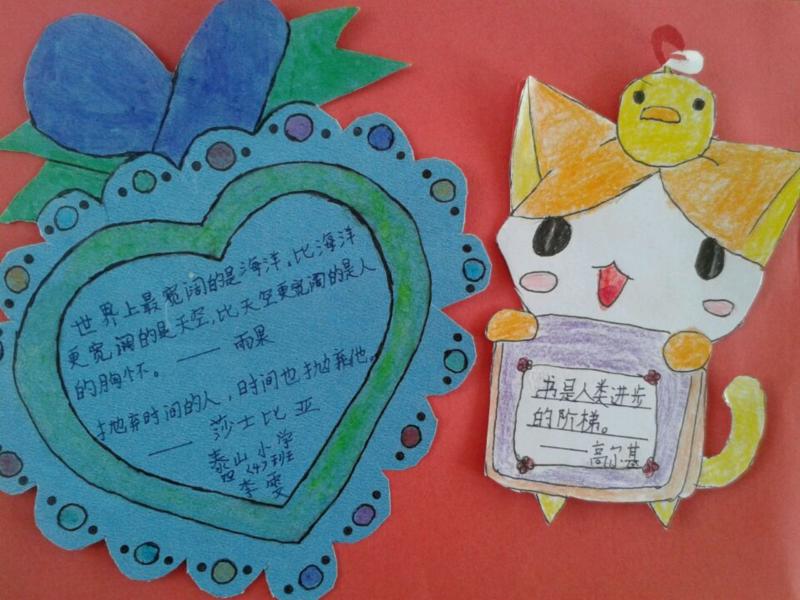 世界上最宽阔的是海洋，比海洋
更宽阔的是天空，比天空更宽阔的是人
的胸怀。——雨果
抛弃时间的人，时间也抛弃他。
——莎士比亚
泰山小学
四(4)班
李雯
书是人类进步
的阶梯。
——高尔基